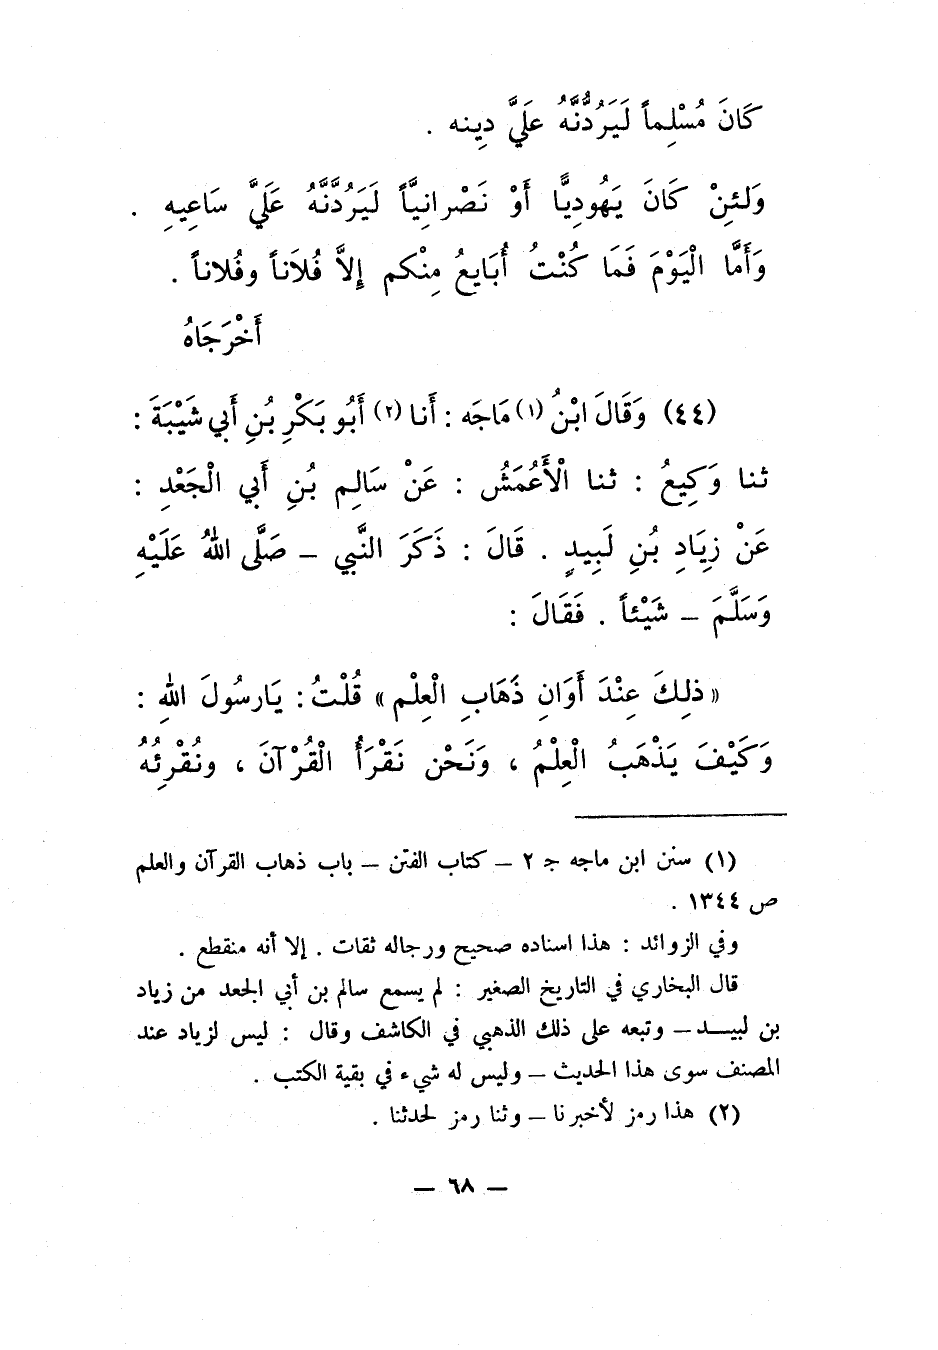 كَانَ مُسْلِماً لَيَرُدُّنَّهُ عَلَيَّ دِينِه .
وَلَئِنْ كَانَ يَهُودِيًّا أَوْ نَصْرانِيَّاً لَيَرُدَّنَّهُ عَلَيَّ سَاعِيهِ .
وَأَمَّا الْيَوْمَ فَمَا كُنْتُ أُبَايعُ مِنْكم إِلاَّ فُلاَناً وفُلاناً .
أَخْرَجَاهُ
(٤٤) وَقَالَ ابْنُ (١) مَاجَه : أَنا (٢) أَبُو بَكْرِ بُنِ أَبي شَيْبَةَ :
ثنا وَكِيعُ : ثنا الْأَعُمَشُ : عَنْ سَالِم بُنِ أَبي الْجَعْدِ :
عَنْ زِيَادِ بُنِ لَبِيدٍ . قَالَ : ذَكَرَ النَّبي – صَلَّى اللهُ عَلَيْهِ
وَسَلَّمَ – شَيْئاً . فَقَالَ :
« ذلِكَ عِنْدَ أَوَانِ ذَهَابِ الْعِلْمِ » قُلْتُ : يَارسُولَ اللهِ :
وَكَيْفَ يَذْهَبُ الْعِلْمُ ، وَنَحْن نَقْرَأُ الْقُرْآنَ ، ونُقْرِئُهُ
(١) سنن ابن ماجه جـ ٢ – كتاب الفتن – باب ذهاب القرآن والعلم
ص ١٣٤٤ .
وفي الزوائد : هذا اسناده صحيح ورجاله ثقات . إلا أنه منقطع .
قال البخاري في التاريخ الصغير : لم يسمع سالم بن أبي الجعد من زياد
بن لبيــد – وتبعه على ذلك الذهبي في الكاشف وقال : ليس لزياد عند
المصنف سوى هذا الحديث – وليس له شيء في بقية الكتب .
(٢) هذا رمز لأخبرنا – وثنا رمز لحدثنا .
– ٦٨ –